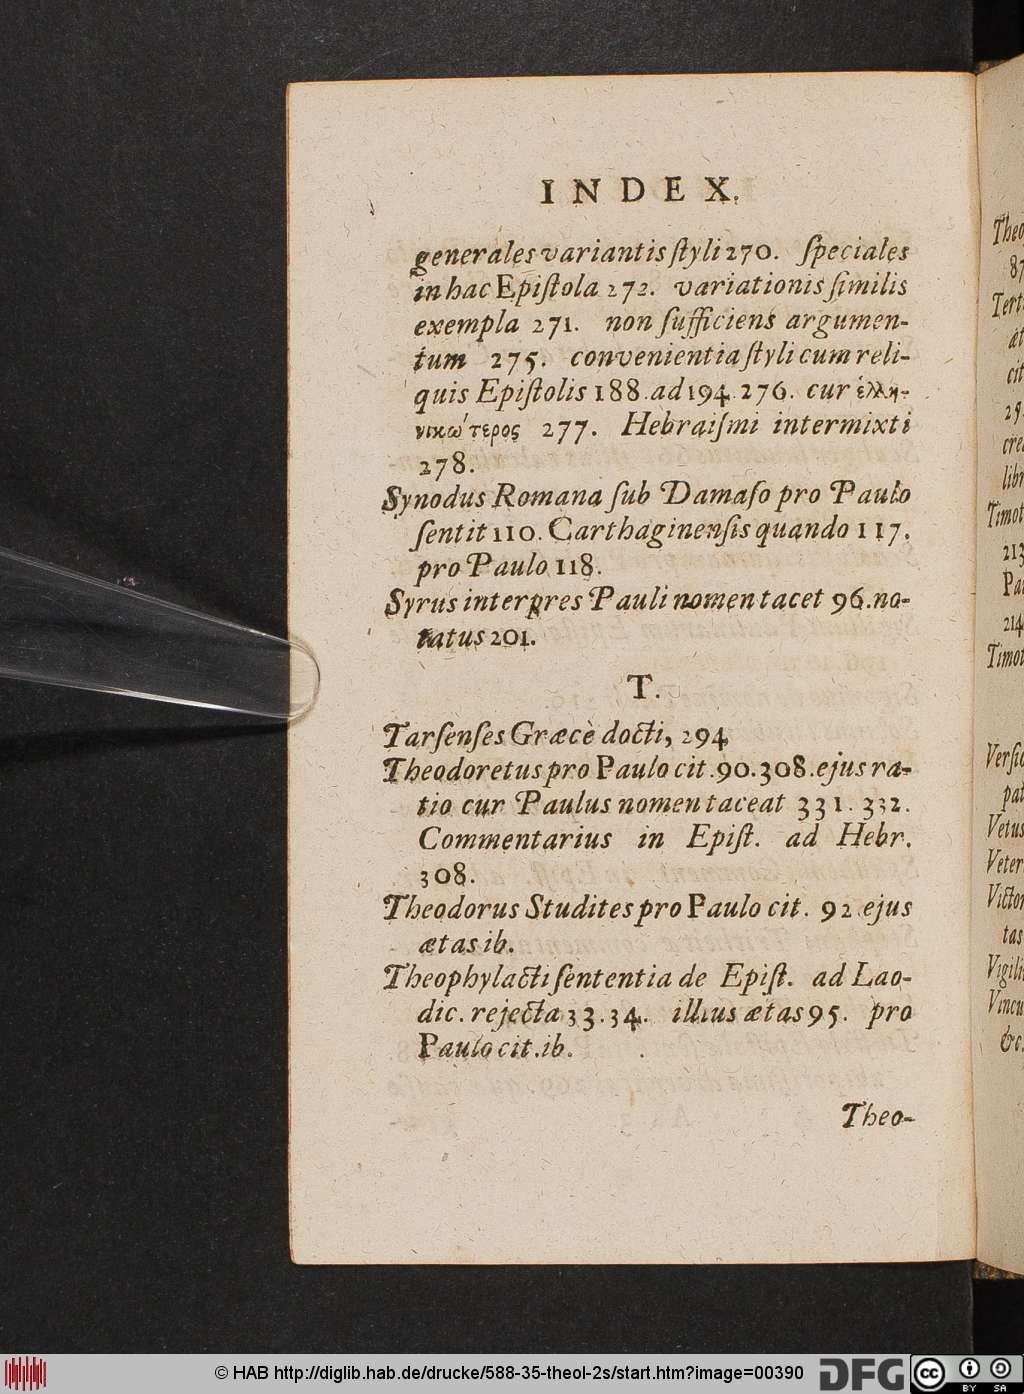 INDEX.
generales variantis ſtyli 270. ſpeciales
in hac Epiſtola 272. variationis ſimilis
exempla 271. non ſufficiens argumen-
tum 275. convenientia ſtyli cum reli-
quis Epiſtolis 188. ad 194. 276. cur ἑλλη-
νικώτερος 277. Hebraiſmi intermixti
278.
Synodus Romana ſub Damaſo pro Paulo
ſentit 110. Carthaginenſis quando 117.
pro Paulo 118.
Syrus interpres Pauli nomen tacet 96. no-
tatus 201.
T.
Tarſenſes Græcè docti, 294
Theodoretus pro Paulo cit. 90. 308. ejus ra-
tio cur Paulus nomen taceat 331. 332.
Commentarius in Epiſt. ad Hebr.
308.
Theodorus Studites pro Paulo cit. 92 ejus
ætas ib.
Theophylacti ſententia de Epiſt. ad Lao-
dic. rejecta 33. 34. illius ætas 95. pro
Paulo cit. ib.
Theo-
Theo
87
Tert
æt
cit
cre
libr
Timot
213
Pau
214
Timot
Verſio
pat
Vetus
Veter
Victor
tas
Vigili
Vincu
&c.
© HAB http://diglib.hab.de/drucke/588-35-theol-2s/start.htm?image=00390
DFG
cc
BY SA